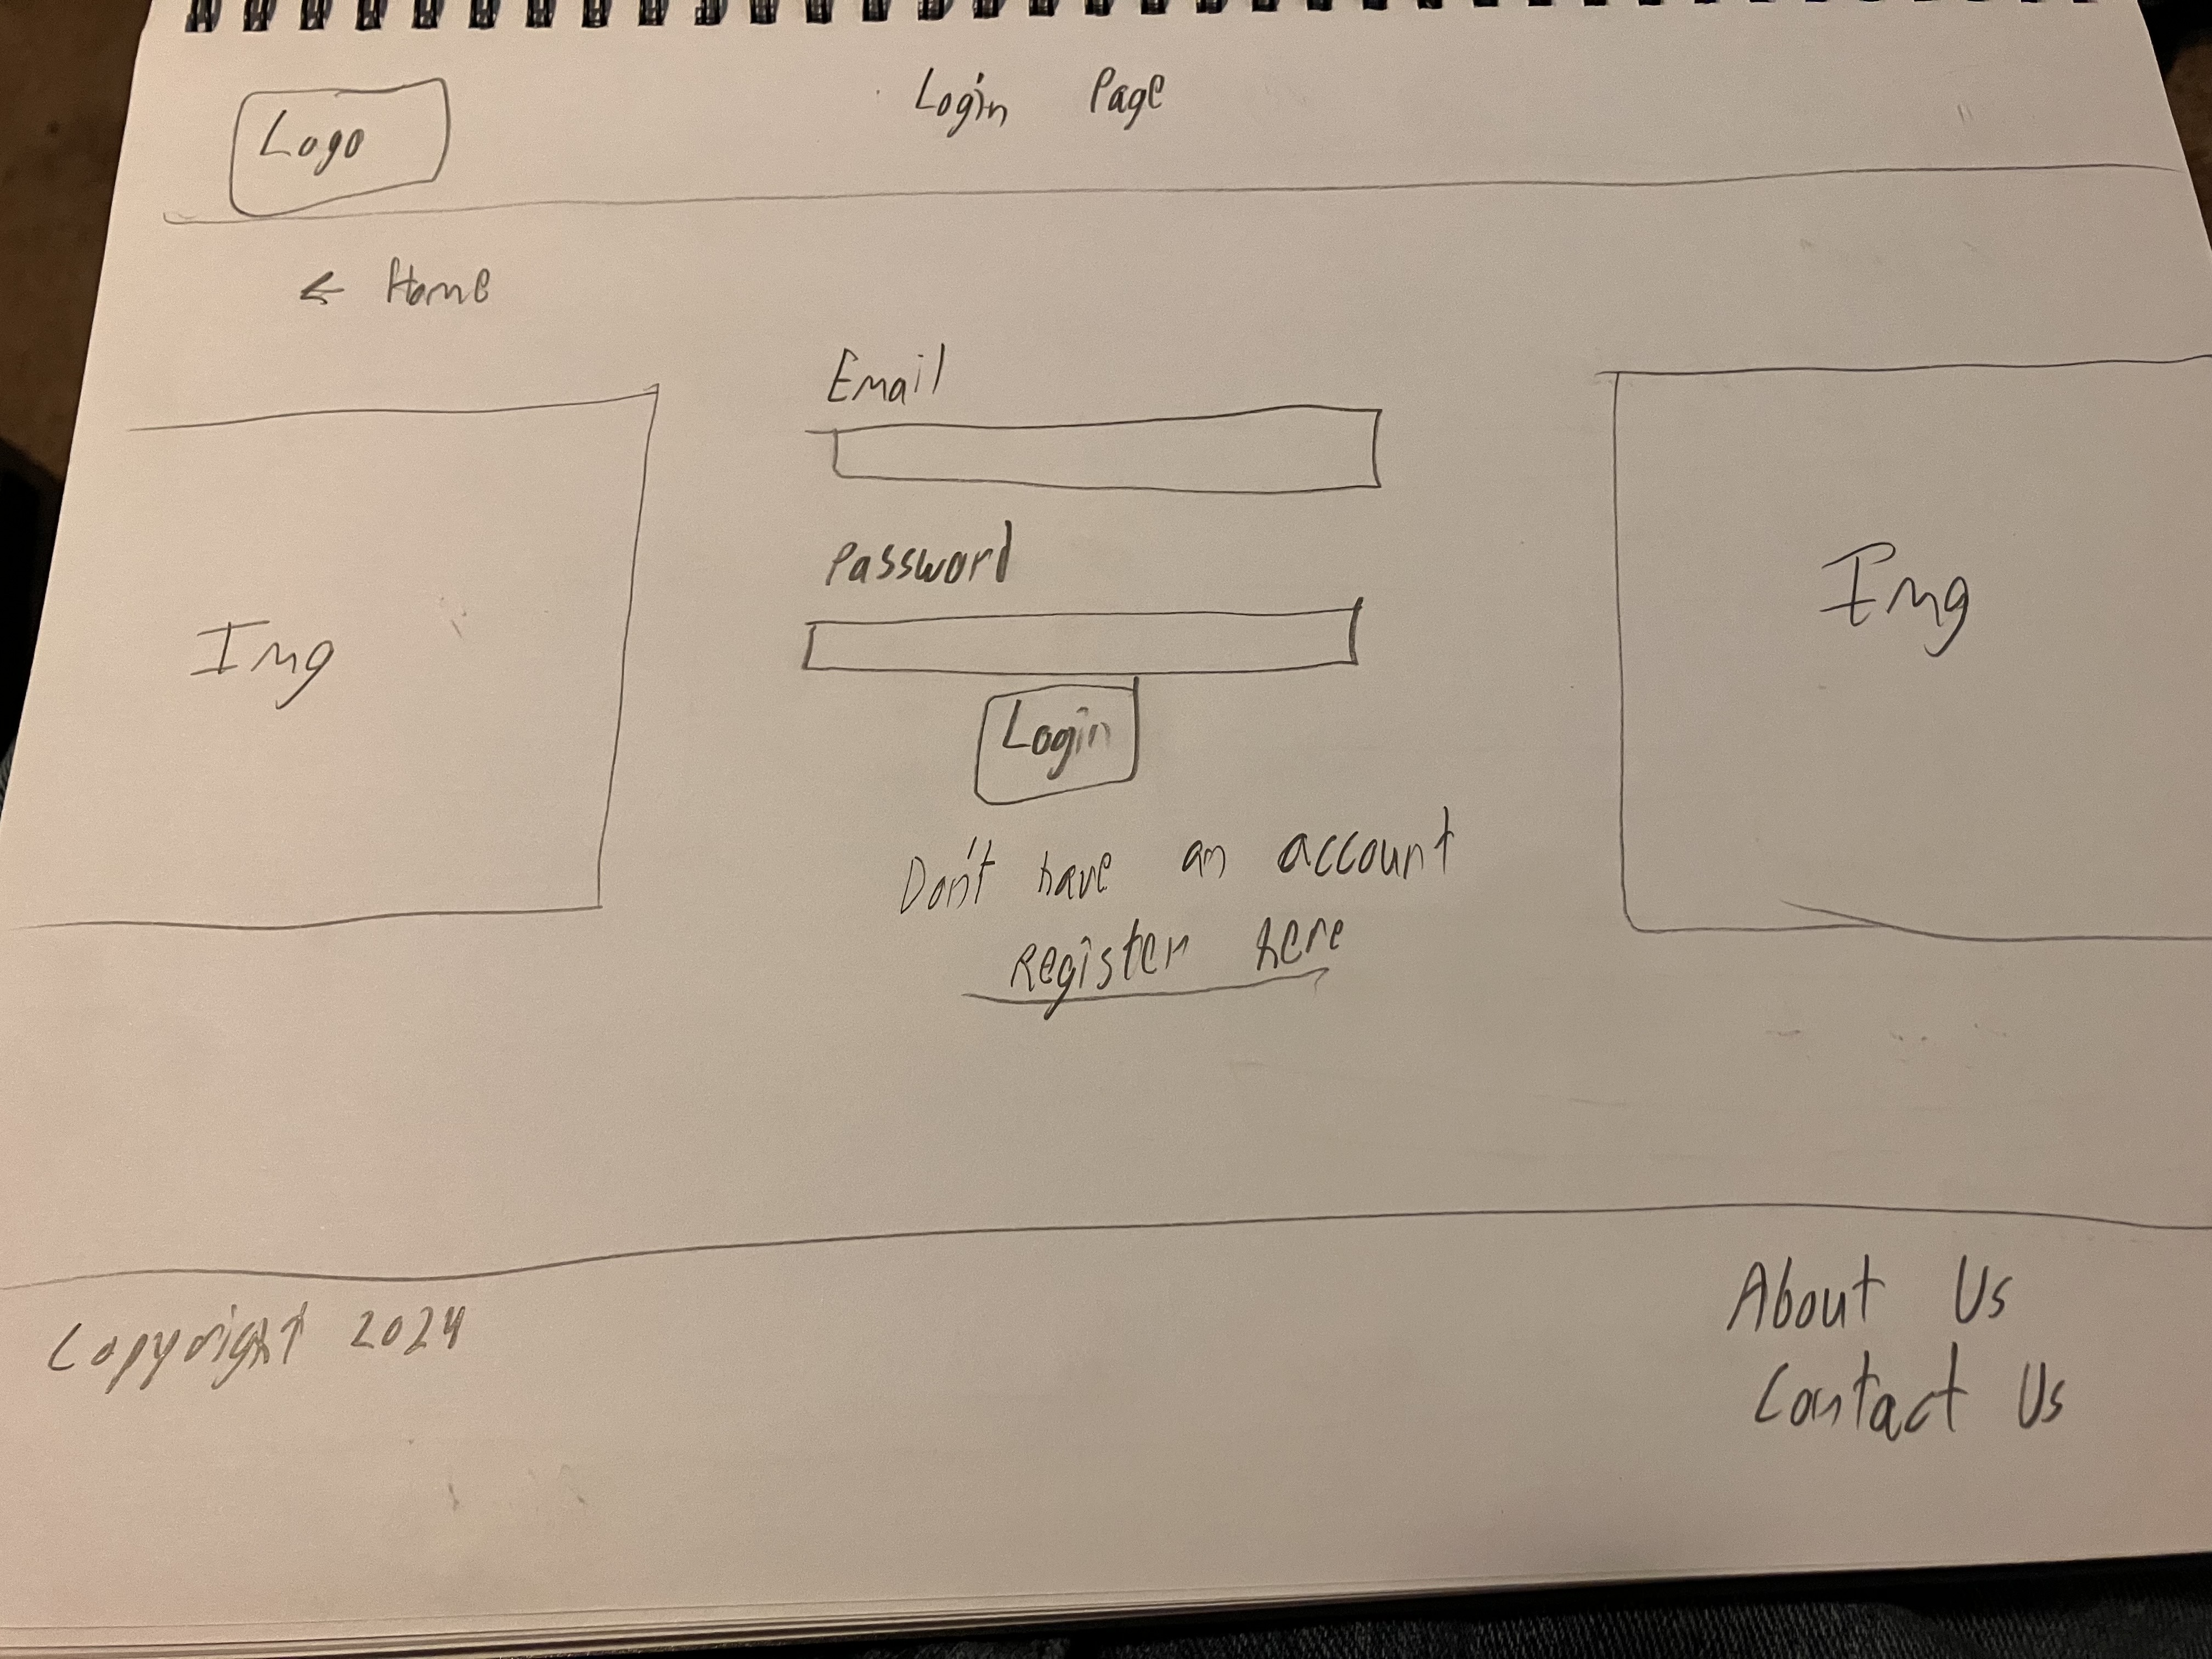 Logo
Login Page
← Home
Email
Password
Img
Img
Login
Don't have an account
Register here
Copyright 2024
About Us
Contact Us